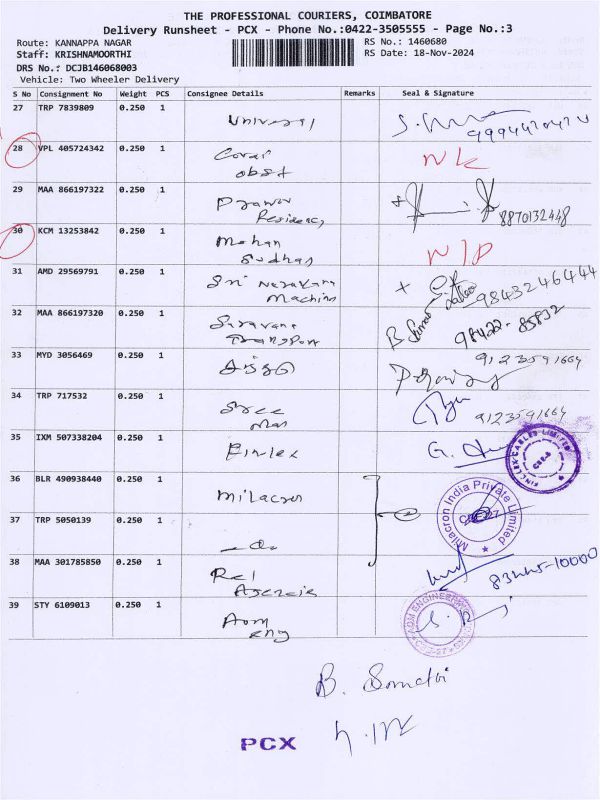 THE PROFESSIONAL COURIERS, COIMBATORE
Delivery Runsheet - PCX - Phone No.:0422-3505555 - Page No.:3
Route: KANNAPPA NAGAR
RS No.: 1460680
Staff: KRISHNAMOORTHI
RS Date: 18-Nov-2024
DRS No.: DCJB146068003
Vehicle: Two Wheeler Delivery
S No Consignment No Weight PCS Consignee Details Remarks Seal & Signature
27 TRP 7839809 0.250 1
Universal
28 VPL 405724342 0.250 1
N/C
29 MAA 866197322 0.250 1
Residency 8870132448
30 KCM 13253842 0.250 1
Mohan N/D
Sudhan
31 AMD 29569791 0.250 1
Sri Narayana 9843246444
Machins
32 MAA 866197320 0.250 1
Saravana 98422-85892
Transport
33 MYD 3056469 0.250 1
9123591664
34 TRP 717532 0.250 1
Sree 9123591664
35 IXM 507338204 0.250 1
FINCLEX CABLES LIMITED
36 BLR 490938440 0.250 1
Milacron
Milacron India Private Limited
37 TRP 5050139 0.250 1
38 MAA 301785850 0.250 1
83445-10000
Agencie
39 STY 6109013 0.250 1
Aom
eng
AOM ENGINEERING
PCX